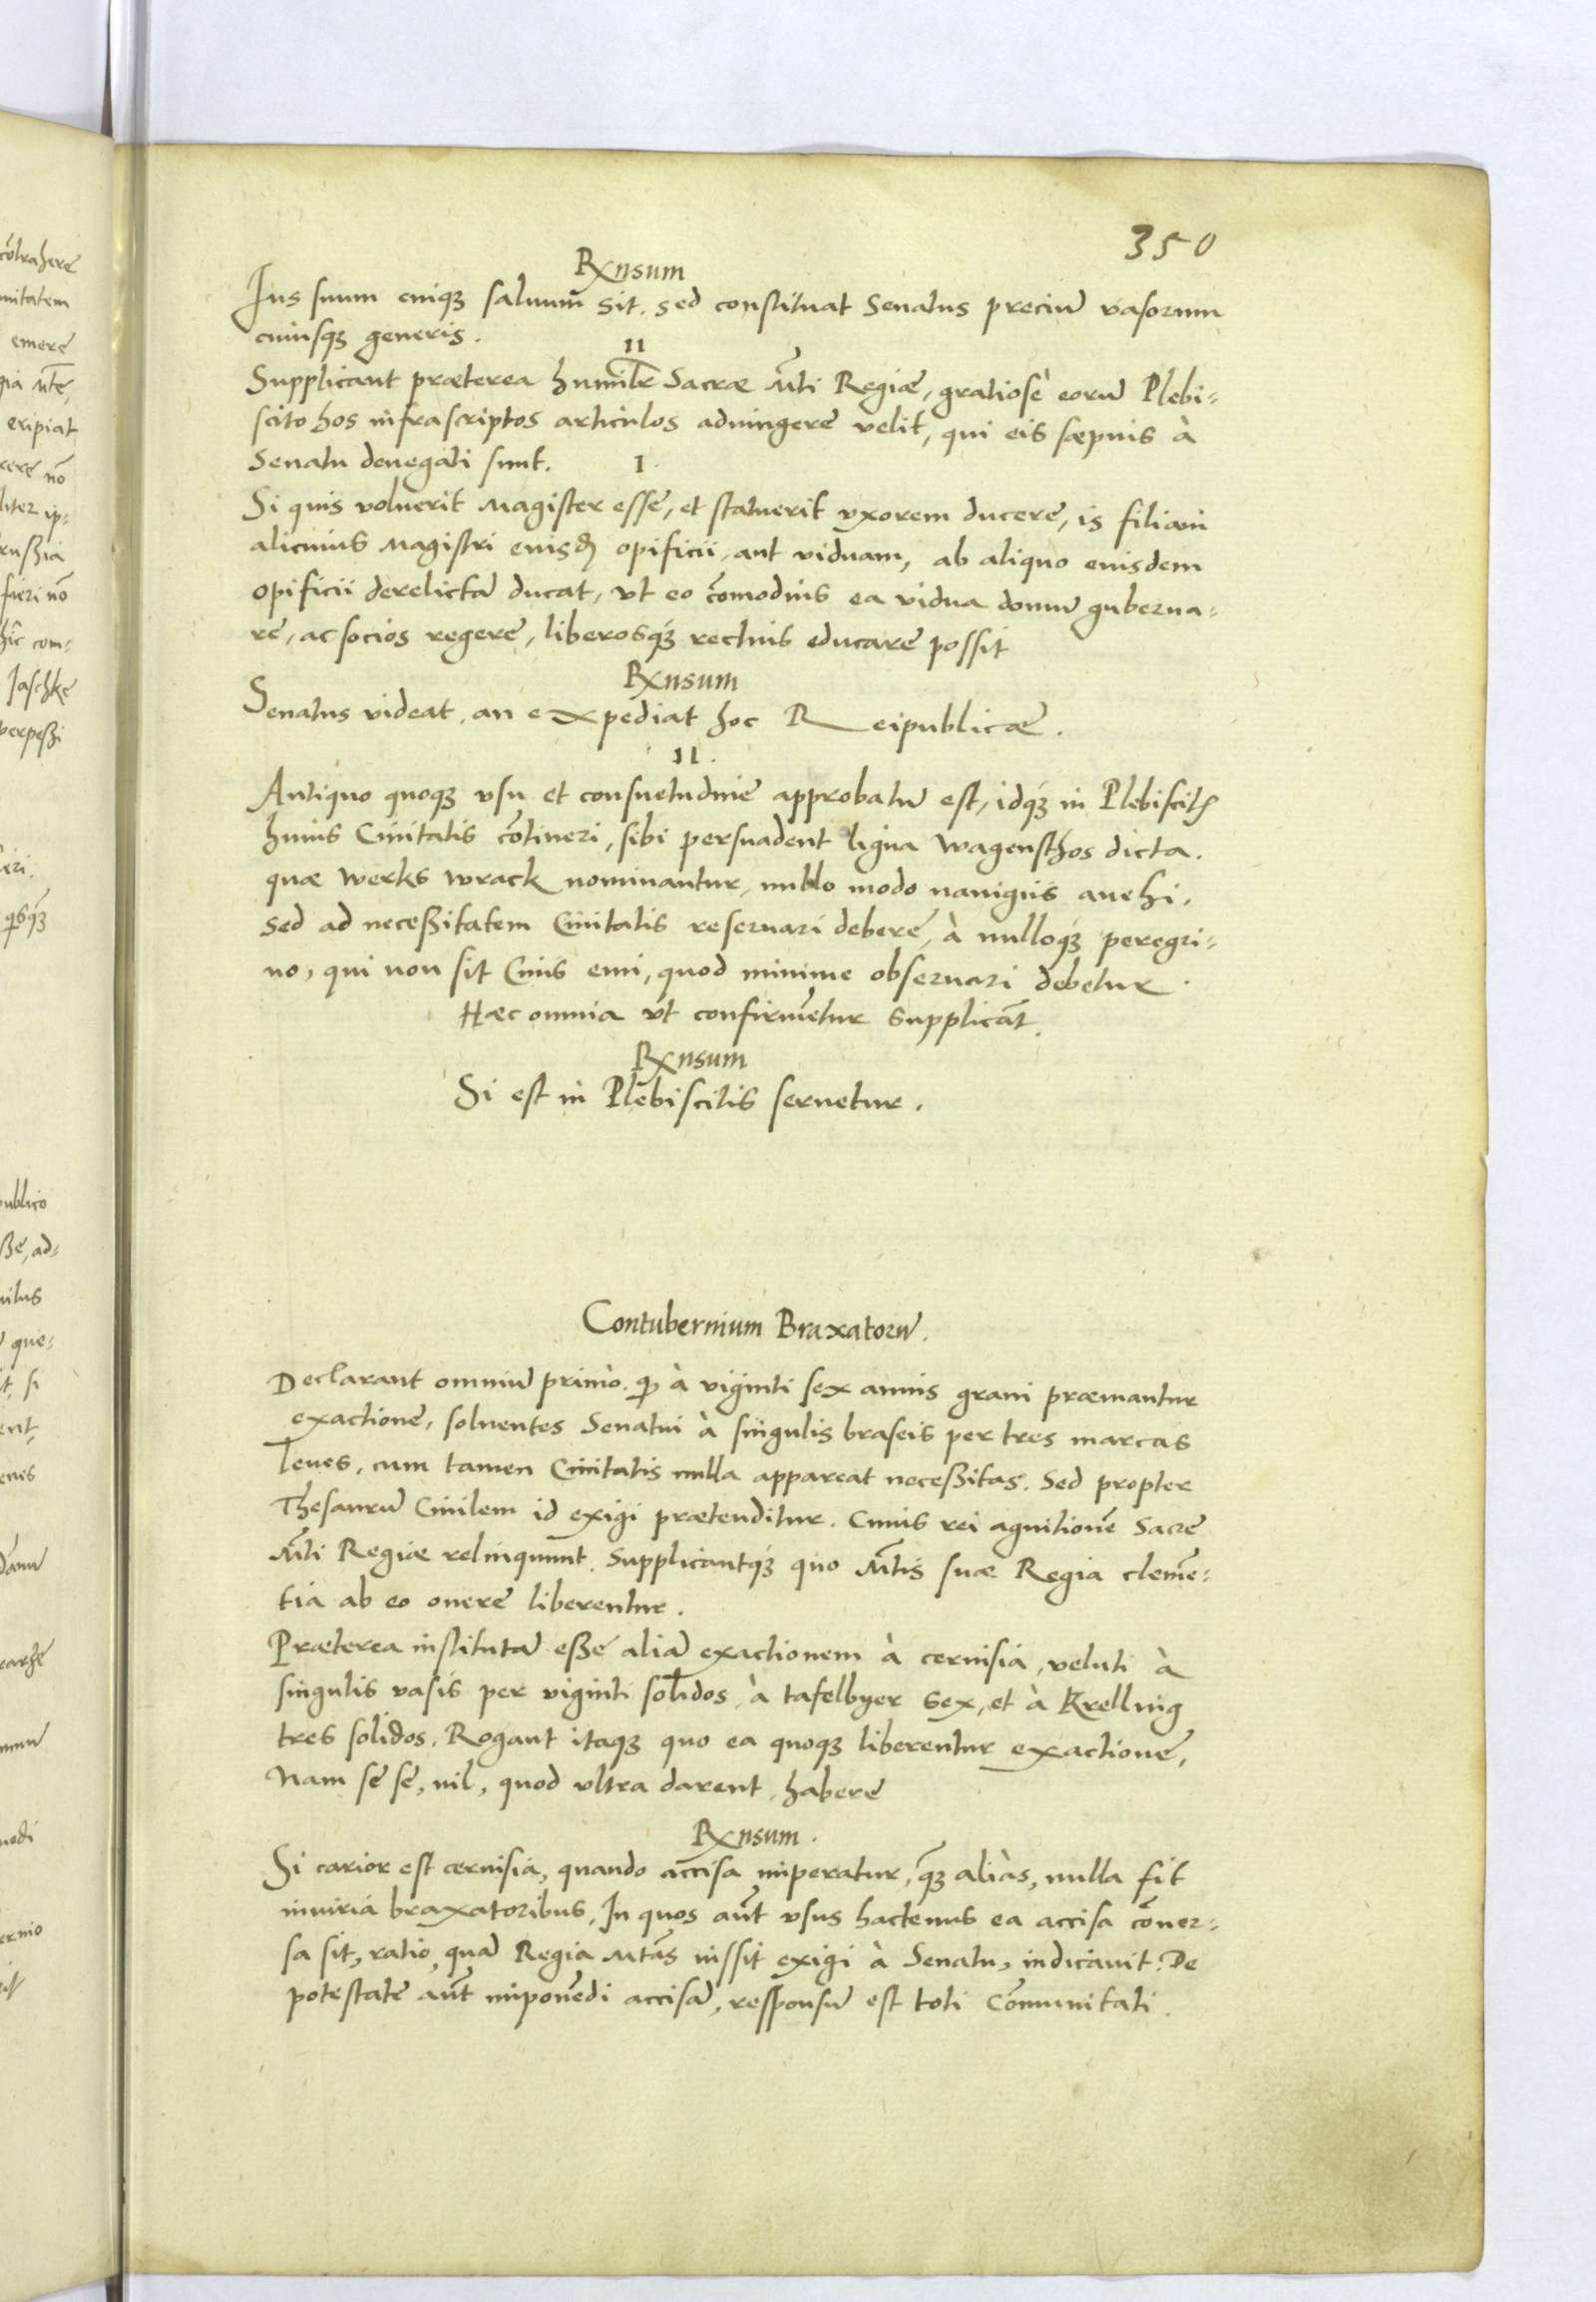 350
Rxnsum
Ius suum cuiqꝫ saluum̄ sit. sed constituat Senatus preciū vasorum
cuiusqꝫ generis.
II
Supplicant præterea humilr̄ Sacræ M̄ti Regiæ, gratiosè eorū Plebi-
scito hos infrascriptos articulos adiungere velit, qui eis sæpius à
Senatu denegati sunt.
I.
Si quis voluerit Magister esse, et statuerit vxorem ducere, is filiam
alicuius Magistri eiusđ opificii, aut viduam, ab aliquo eiusdem
opificii derelictā ducat, vt eo cōmodius ea vidua domū guberna-
re, ac socios regere, liberosqꝫ rectius educare possit
Rxnsum
Senatus videat, an expediat hoc Reipublicæ.
II.
Antiquo quoqꝫ vsu et consuetudine approbatū est, idqꝫ in Plebiscitꝭ
huius Ciuitatis cōtineri, sibi persuadent ligna Wagensthos dicta.
quæ Werks wrack nominantur, nullo modo nauigiis auehi,
sed ad neceßitatem Ciuitatis reseruari debere, à nulloqꝫ peregri-
no, qui non sit Ciuis emi, quod minime obseruari debetur.
Hæc omnia vt confirmētur supplicāt.
Rxnsum
Si est in Plebiscitis seruetur.
Contubernium Braxatorū.
Declarant omniū primò. ꝙ à viginti sex annis graui præmantur
exactione, soluentes Senatui à singulis braseis per tres marcas
leues, cum tamen Ciuitatis nulla appareat neceßitas. Sed propter
Thesaurū Ciuilem id exigi prætenditur. Cuius rei agnitionē Sacre
M̄ti Regiæ relinquunt. Supplicantqꝫ quo M̄tis suæ Regia clemē-
tia ab eo onere liberentur.
Præterea institutā eße aliā exactionem à ceruisia, veluti à
singulis vasis per viginti solidos, à tafelbyer sex, et à Krelling
tres solidos. Rogant itaqꝫ quo ea quoqꝫ liberentur exactione,
Nam se se, nil, quod vltra darent, habere
Rxnsum.
Si carior est ceruisia, quando accisa imperatur, qꝫ̄ aliàs, nulla fit
iniuria braxatoribus, In quos aūt vsus hactenus ea accisa cōuer-
sa sit, ratio, quā Regia Mtās iussit exigi à Senatu, indicauit. De
potestate aūt imponēdi accisā, responsū est toti Cōmunitati.